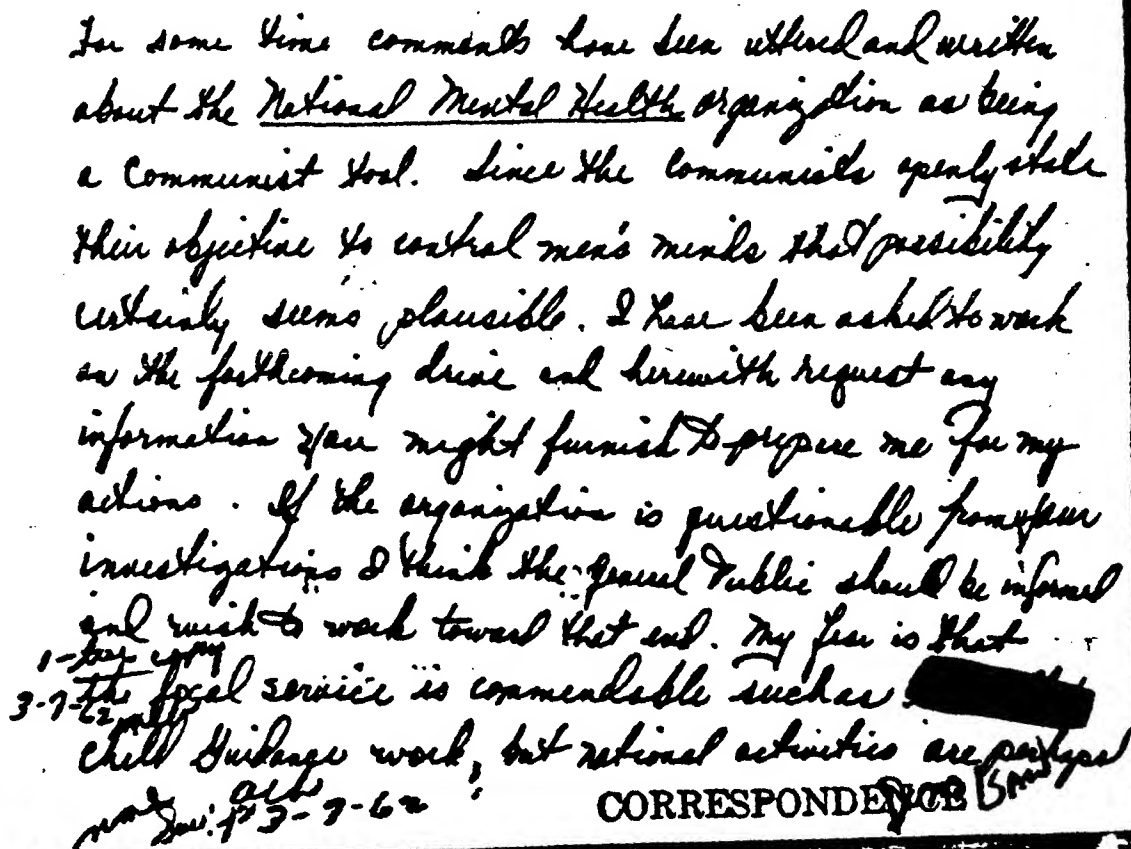 For some time comments have been uttered and written
about the National Mental Health organization as being
a Communist tool. Since the communists openly state
their objective to control men's minds that possibility
certainly seems plausible. I have been asked to work
on the forthcoming drive and herewith request any
information you might furnish to prepare me for my
actions. If the organization is questionable from your
investigations I think the general Public should be informed
and wish to work toward that end. My fear is that
1- copy
the local service is commendable such as
3-7-62
child Guidance work, but national activities are perhaps
3-7-62
CORRESPONDENCE